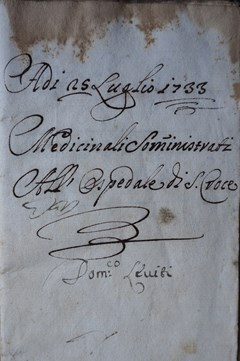 Adi 25 Luglio 1733
Medicinali Som̃inistrati
All' Ospedale di S. Croce
Dom.co Leviti